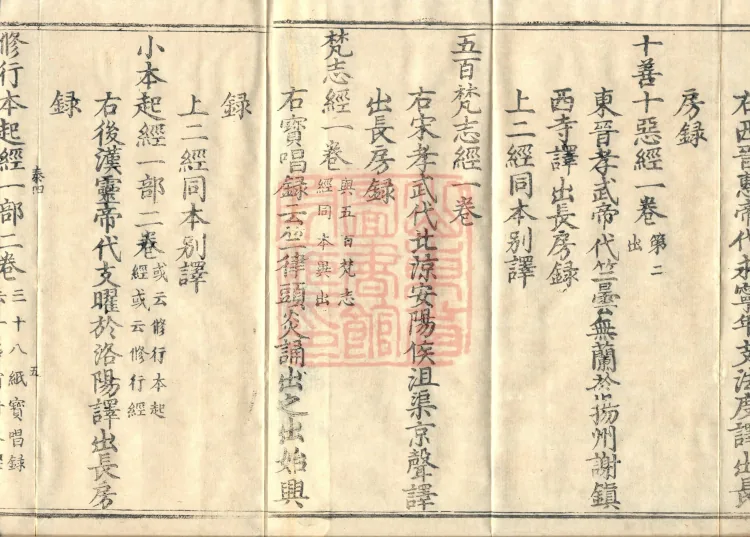 右西晉惠帝代永寧年支法度譯出長
房録
十善十惡經一卷 第二出
東晉孝武帝代竺曇無蘭於揚州謝鎮
西寺譯出長房録
上二經同本別譯
五百梵志經一卷
右宋孝武代北涼安陽侯沮渠京聲譯
出長房録
梵志經一卷 與五百梵志經同本異出
右寶唱録云竺律頭炎誦出之出始興
録
上二經同本別譯
小本起經一部二卷 或云修行本起經或云修行經
右後漢靈帝代支曜於洛陽譯出長房
録
卷四 五
修行本起經一部二卷 三十八紙寶唱録